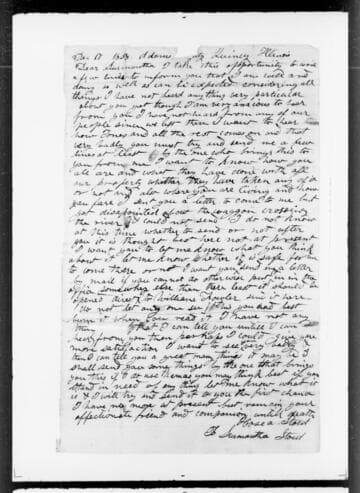 Dear Samantha I take this opportunity to write
a few lines to inform you that I am well and
doing as well as can be expected considering all
things I have not heard any thing very particular
about you yet though I am very anxious to hear
from you I have not heard from any of our
people since we left them I want to hear
how Jones and all the rest comes on and that
very badly you must try and send me a few
lines at least by the one who brings this to
you from me I want to know how you
all are and what they have done with all
our property whether they have taken any of it
or not and also where you are living and how
you fare I sent you a letter to come to me but
got disappointed about the waggon crossing
the river & could not send I do not know
at this time whether to send or not after
you it is thought best here not at present
I want you to let me know what you think
about it let me know whether it is safe for me
to come there or not I want you send me a letter
by mail if you cannot no otherwise put in in the
office some where else than there least it should be
opened direct to William Stouder sen here
do not let any one see this you had best
burn it when you read it I have not any
thing that I can tell you untill I can
hear from you then perhaps I could give you
more satisfaction I want to see very badly
then I can tell you a great many things it may be I
shall send you some things by the one that brings
you this if I do use them as you may think best if you
stand in need of any thing let me know what it
is & I will try and send it to you the first chance
I have no more at present but remain your
affectionate friend and companion untill death
Hosea Stout
To Samantha Stout